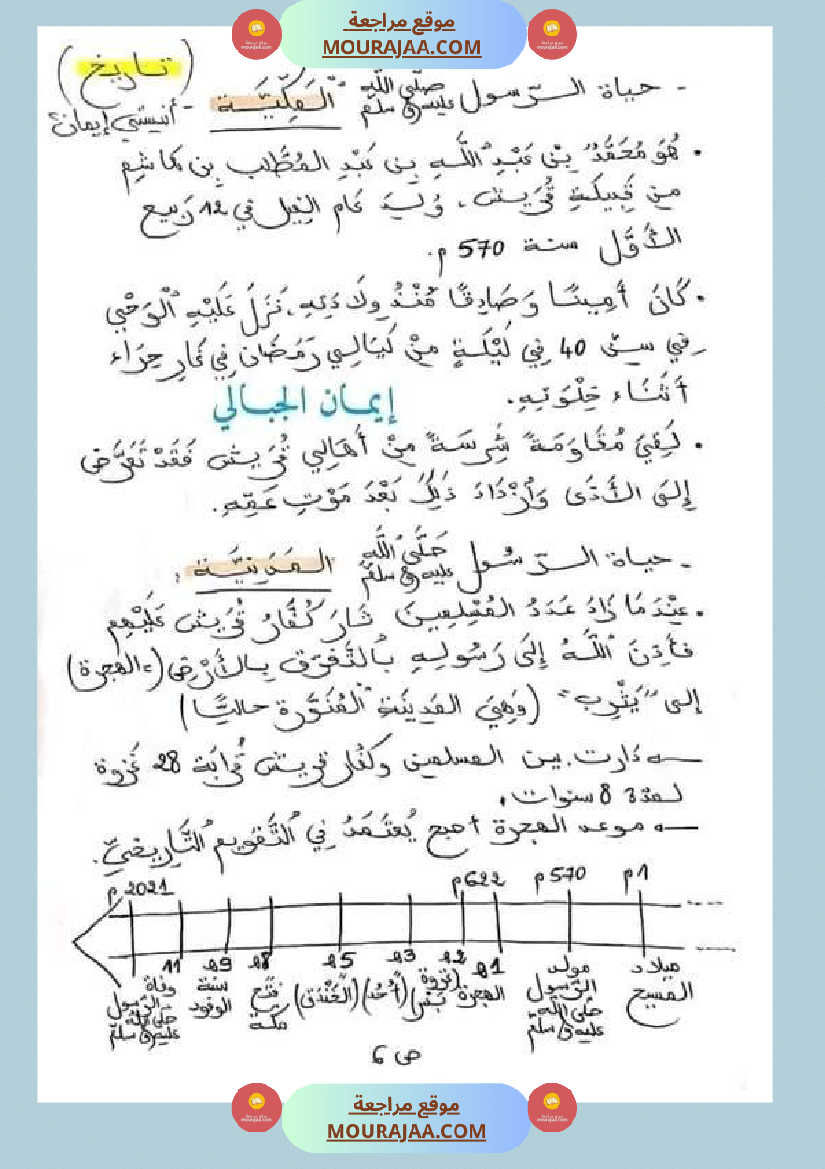 موقع مراجعة
MOURAJAA.COM
(تاريخ)
- حياة الرّسول صلّى اللّه عليه و سلّم المَكِّيَّة - أنيستي إيمان
• هُوَ مُحَمَّدٌ بْنُ عَبْدِ اللَّهِ بْنِ عَبْدِ المُطَّلب بن هَاشِم
من قَبِيلَةِ قُرَيْش، وُلِدَ عام الفِيل في 12 رَبيع
الأَوَّل سنة 570 م.
• كَانَ أَمِينًا وَصَادِقًا مُنْذُ وِلَادَتِهِ. نَزَلَ عَلَيْهِ الْوَحْيُ
فِي سِنّ 40 فِي لَيْلَةٍ مِنْ لَيَالِي رَمَضَان فِي غَارِ حِرَاء
أَثْنَاء خَلْوَتِهِ.
إيمان الجبالي
• لَقِيَ مُقَاوَمَةً شَرِسَةً مِنْ أَهَالِي قُرَيْش فَقَدْ تَعَرَّضَ
إِلَى الأَذَى وَازْدَادَ ذَلِكَ بَعْدَ مَوْتِ عَمِّهِ.
- حياة الرّسُول صَلَّى اللَّه عليه و سلّم المَدَنِيَّة :
• عِنْدَمَا زَادَ عَدَدُ المُسْلِمِينَ ثَارَ كُفَّارُ قُرَيْش عَلَيْهِم
فَأَذِنَ اللَّهُ إِلَى رَسُولِهِ بِالتَّفَرّق بِالأَرْض (= الهجرة)
إلى "يَثْرِب" (وَهِيَ المَدِينَة المُنَوَّرَة حاليًّا)
← دَارت بين المسلمين وكفّار قريش قُرَابَة 28 غَزوة
لمدّة 8 سنوات.
← موعد الهجرة أصبح يُعْتَمَدُ فِي التَّقْوِيمِ التَّارِيخيّ.
م1 م570 م622 م2021
ه1 ه2 ه3 ه5 ه8 ه9 11
ميلاد المسيح
مولد الرّسول صلّى اللّه عليه و سلّم
الهجرة
(غزوة بَدْر)
(أُحُد)
(الخَنْدَق)
فَتْح مكّة
سنة الوفود
وفاة الرّسول صلّى اللّه عليه و سلّم
ص 6
موقع مراجعة
MOURAJAA.COM